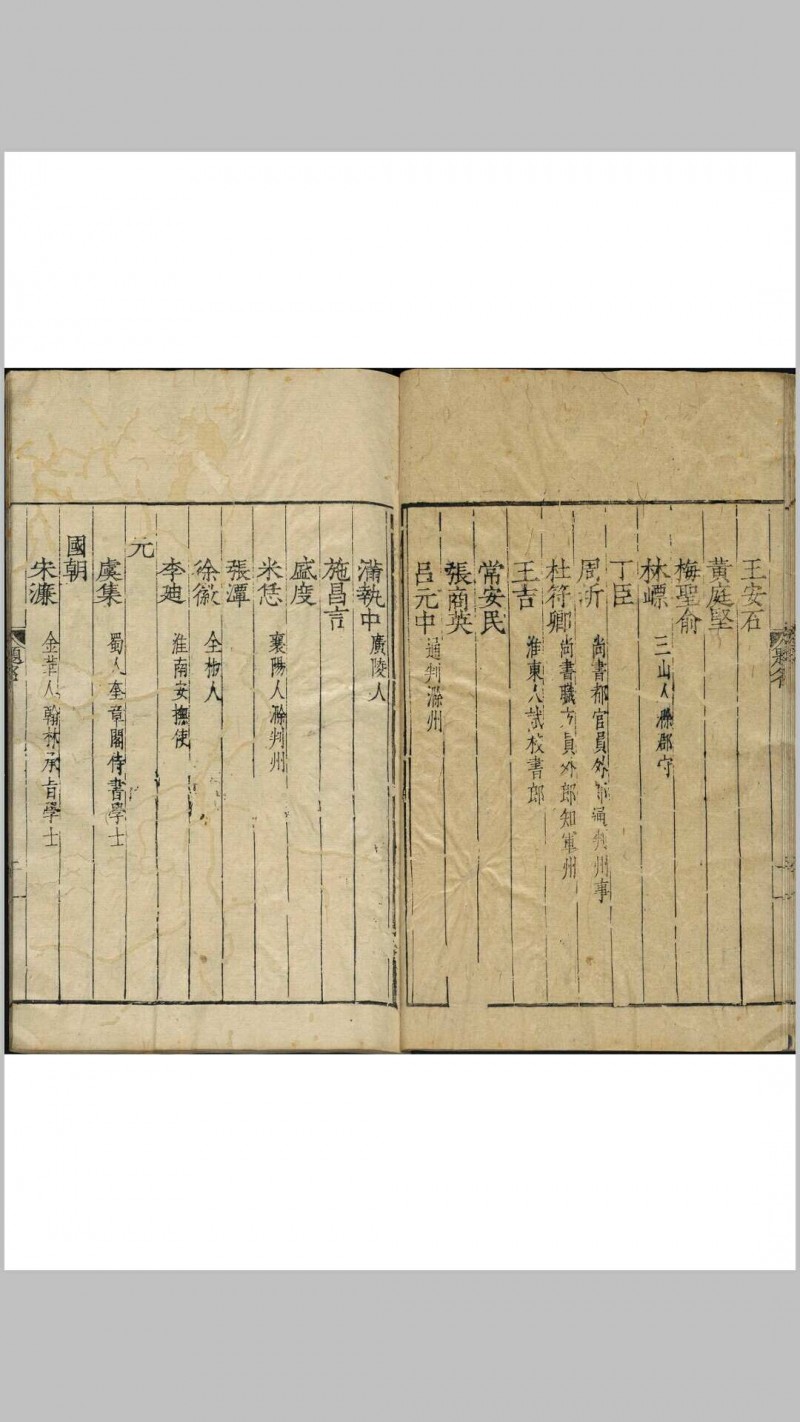 王安石
黃庭堅
梅聖俞
林㟽 三山人滁郡守
丁臣
周沂 尚書都官員外郎通判州事
杜符卿 尚書職方員外郎知軍州
王吉 淮東人試校書郎
常安民
張商英
呂元中 通判滁州
滿執中 廣陵人
施昌言
盛度
米恁 襄陽人滁判州
張潭
徐徽 全椒人
李廸 淮南安撫使
元
虞集 蜀人奎章閣侍書學士
國朝
宋濂 金華人翰林承旨學士
題名